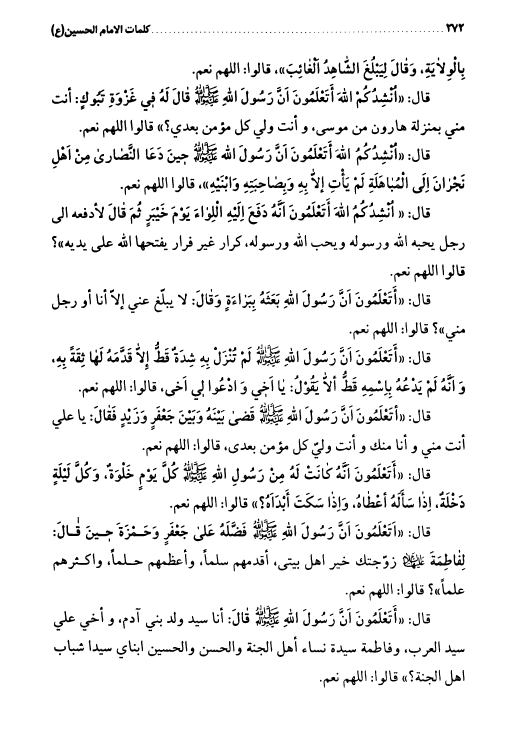 ٢٧٢ ........................ كلمات الامام الحسين(ع)
بِالْوِلاٰيَةِ، وَقٰالَ لِيَبْلُغَ الشّٰاهِدُ الْغٰائِبَ»، قالوا: اللهم نعم.
قال: «اُنْشِدُكُمُ اللهَ أَتَعْلَمُونَ اَنَّ رَسُولَ اللهِ ﷺ قٰالَ لَهُ فِي غَزْوَةِ تَبُوكٍ: أنت
مني بمنزلة هارون من موسى، و أنت ولي كل مؤمن بعدي؟» قالوا اللهم نعم.
قال: «اُنْشِدُكُمُ اللهَ أَتَعْلَمُونَ اَنَّ رَسُولَ اللهِ ﷺ حِينَ دَعَا النَّصٰارىٰ مِنْ اَهْلِ
نَجْرٰانَ اِلَى الْمُبٰاهَلَةِ لَمْ يَأْتِ اِلاّٰ بِهِ وَبِصٰاحِبَتِهِ وَابْنَيْهِ»، قالوا اللهم نعم.
قال: « اُنْشِدُكُمُ اللهَ أَتَعْلَمُونَ اَنَّهُ دَفَعَ اِلَيْهِ اللِّوٰاءَ يَوْمَ خَيْبَرٍ ثُمَّ قٰالَ لأدفعه الى
رجل يحبه الله ورسوله ويحب الله ورسوله، كرار غير فرار يفتحها الله على يديه»؟
قالوا اللهم نعم.
قال: «أَتَعْلَمُونَ اَنَّ رَسُولَ اللهِ بَعَثَهُ بِبَرٰاءَةٍ وَقٰالَ: لا يبلّغ عني إلاّ أنا أو رجل
مني»؟ قالوا: اللهم نعم.
قال: «أَتَعْلَمُونَ اَنَّ رَسُولَ اللهِ ﷺ لَمْ تُنْزَلْ بِهِ شِدَةٌ قَطُّ اِلاّٰ قَدَّمَهُ لَهٰا ثِقَةً بِهِ،
وَ اَنَّهُ لَمْ يَدْعُهُ بِاِسْمِهِ قَطُّ اَلاّٰ يَقُولُ: يٰا اَخِي وَ ادْعُوا لِي اَخى، قالوا: اللهم نعم.
قال: «أَتَعْلَمُونَ اَنَّ رَسُولَ اللهِ ﷺ قَضىٰ بَيْنَهُ وَبَيْنَ جَعْفَرٍ وَزَيْدٍ فَقٰالَ: يا علي
أنت مني و أنا منك و أنت وليّ كل مؤمن بعدى، قالوا: اللهم نعم.
قال: «أَتَعْلَمُونَ اَنَّهُ كٰانَتْ لَهُ مِنْ رَسُولِ اللهِ ﷺ كُلَّ يَوْمٍ خَلْوَةٌ، وَكُلَّ لَيْلَةٍ
دَخْلَةٌ، اِذٰا سَأَلَهُ أَعْطٰاهُ، وَاِذٰا سَكَتَ أَبْدَاَهُ؟» قالوا: اللهم نعم.
قال: «أَتَعْلَمُونَ اَنَّ رَسُولَ اللهِ ﷺ فَضَّلَهُ عَلىٰ جَعْفَرٍ وَحَمْزَةَ حِينَ قٰالَ:
لِفٰاطِمَةَ زوّجتك خير اهل بيتى، أقدمهم سلماً، وأعظمهم حلماً، واكثرهم
علماً»؟ قالوا: اللهم نعم.
قال: «أَتَعْلَمُونَ اَنَّ رَسُولَ اللهِ ﷺ قٰالَ: أنا سيد ولد بني آدم، و أخي علي
سيد العرب، وفاطمة سيدة نساء أهل الجنة والحسن والحسين ابناي سيدا شباب
اهل الجنة؟» قالوا: اللهم نعم.